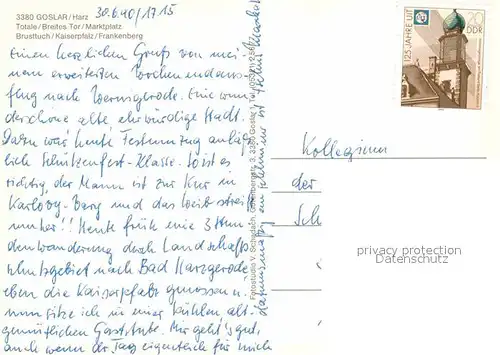 3380 GOSLAR / Harz
Totale / Breites Tor / Marktplatz
Brusttuch / Kaiserpfalz / Frankenberg
30.6.90 / 17.15
Einen herzlichen Gruß von mei-
nem erweiterten Wochenendaus-
flug nach Wernigerode. Eine wun-
derschöne alte ehrwürdige Stadt.
Dazu war heute Festumzug anläß-
lich Schützenfest - Klasse. So ist es
richtig, der Mann ist zur Kur in
Karlovy-Vary und das Weib streift
umher!! Heute früh eine 3 Stun-
denwanderung durch Landschafts-
schutzgebiet nach Bad Harzgerode
eben die Kaiserpfalz genossen u.
nun sitze ich in einer kühlen alt-
gemütlichen Gaststube. Mir geht's gut,
auch wenn der Tag eigentlich für mich
Fotostudio V. Schadach, 3380 Goslar, Tel.
125 JAHRE UIT
20
DDR
Kollegium
der
Sch
privacy protection
Datenschutz